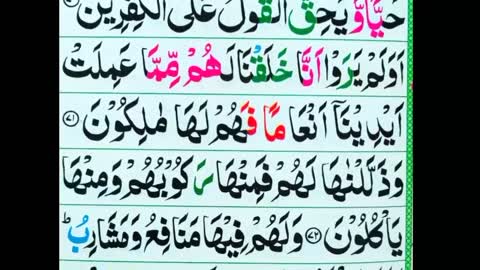 حَيًّا وَّ يَحِقَّ الْقَوْلُ عَلَى الْكٰفِرِيْنَ ۷۰
اَوَلَمْ يَرَوْا اَنَّا خَلَقْنَا لَهُمْ مِّمَّا عَمِلَتْ
اَيْدِيْنَاۤ اَنْعَامًا فَهُمْ لَهَا مٰلِكُوْنَ ۷۱
وَ ذَلَّلْنٰهَا لَهُمْ فَمِنْهَا رَكُوْبُهُمْ وَ مِنْهَا
يَاْكُلُوْنَ ۷۲ وَ لَهُمْ فِيْهَا مَنَافِعُ وَ مَشَارِبُ ؕ